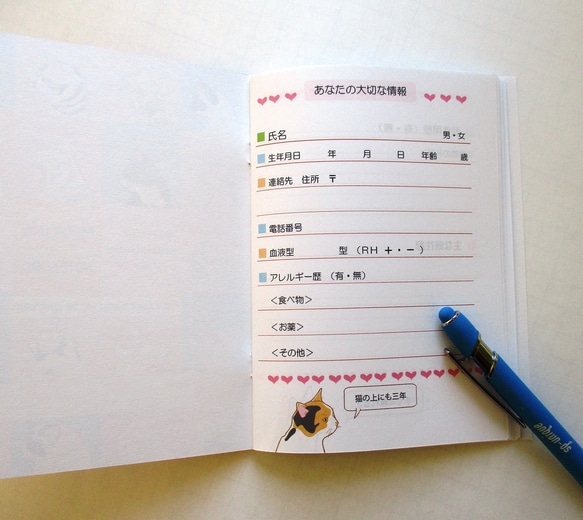 あなたの大切な情報
氏名 男・女
生年月日 年 月 日 年齢 歳
連絡先 住所 〒
電話番号
血液型 型 (RH ＋・－)
アレルギー歴 (有・無)
＜食べ物＞
＜お薬＞
＜その他＞
猫の上にも三年